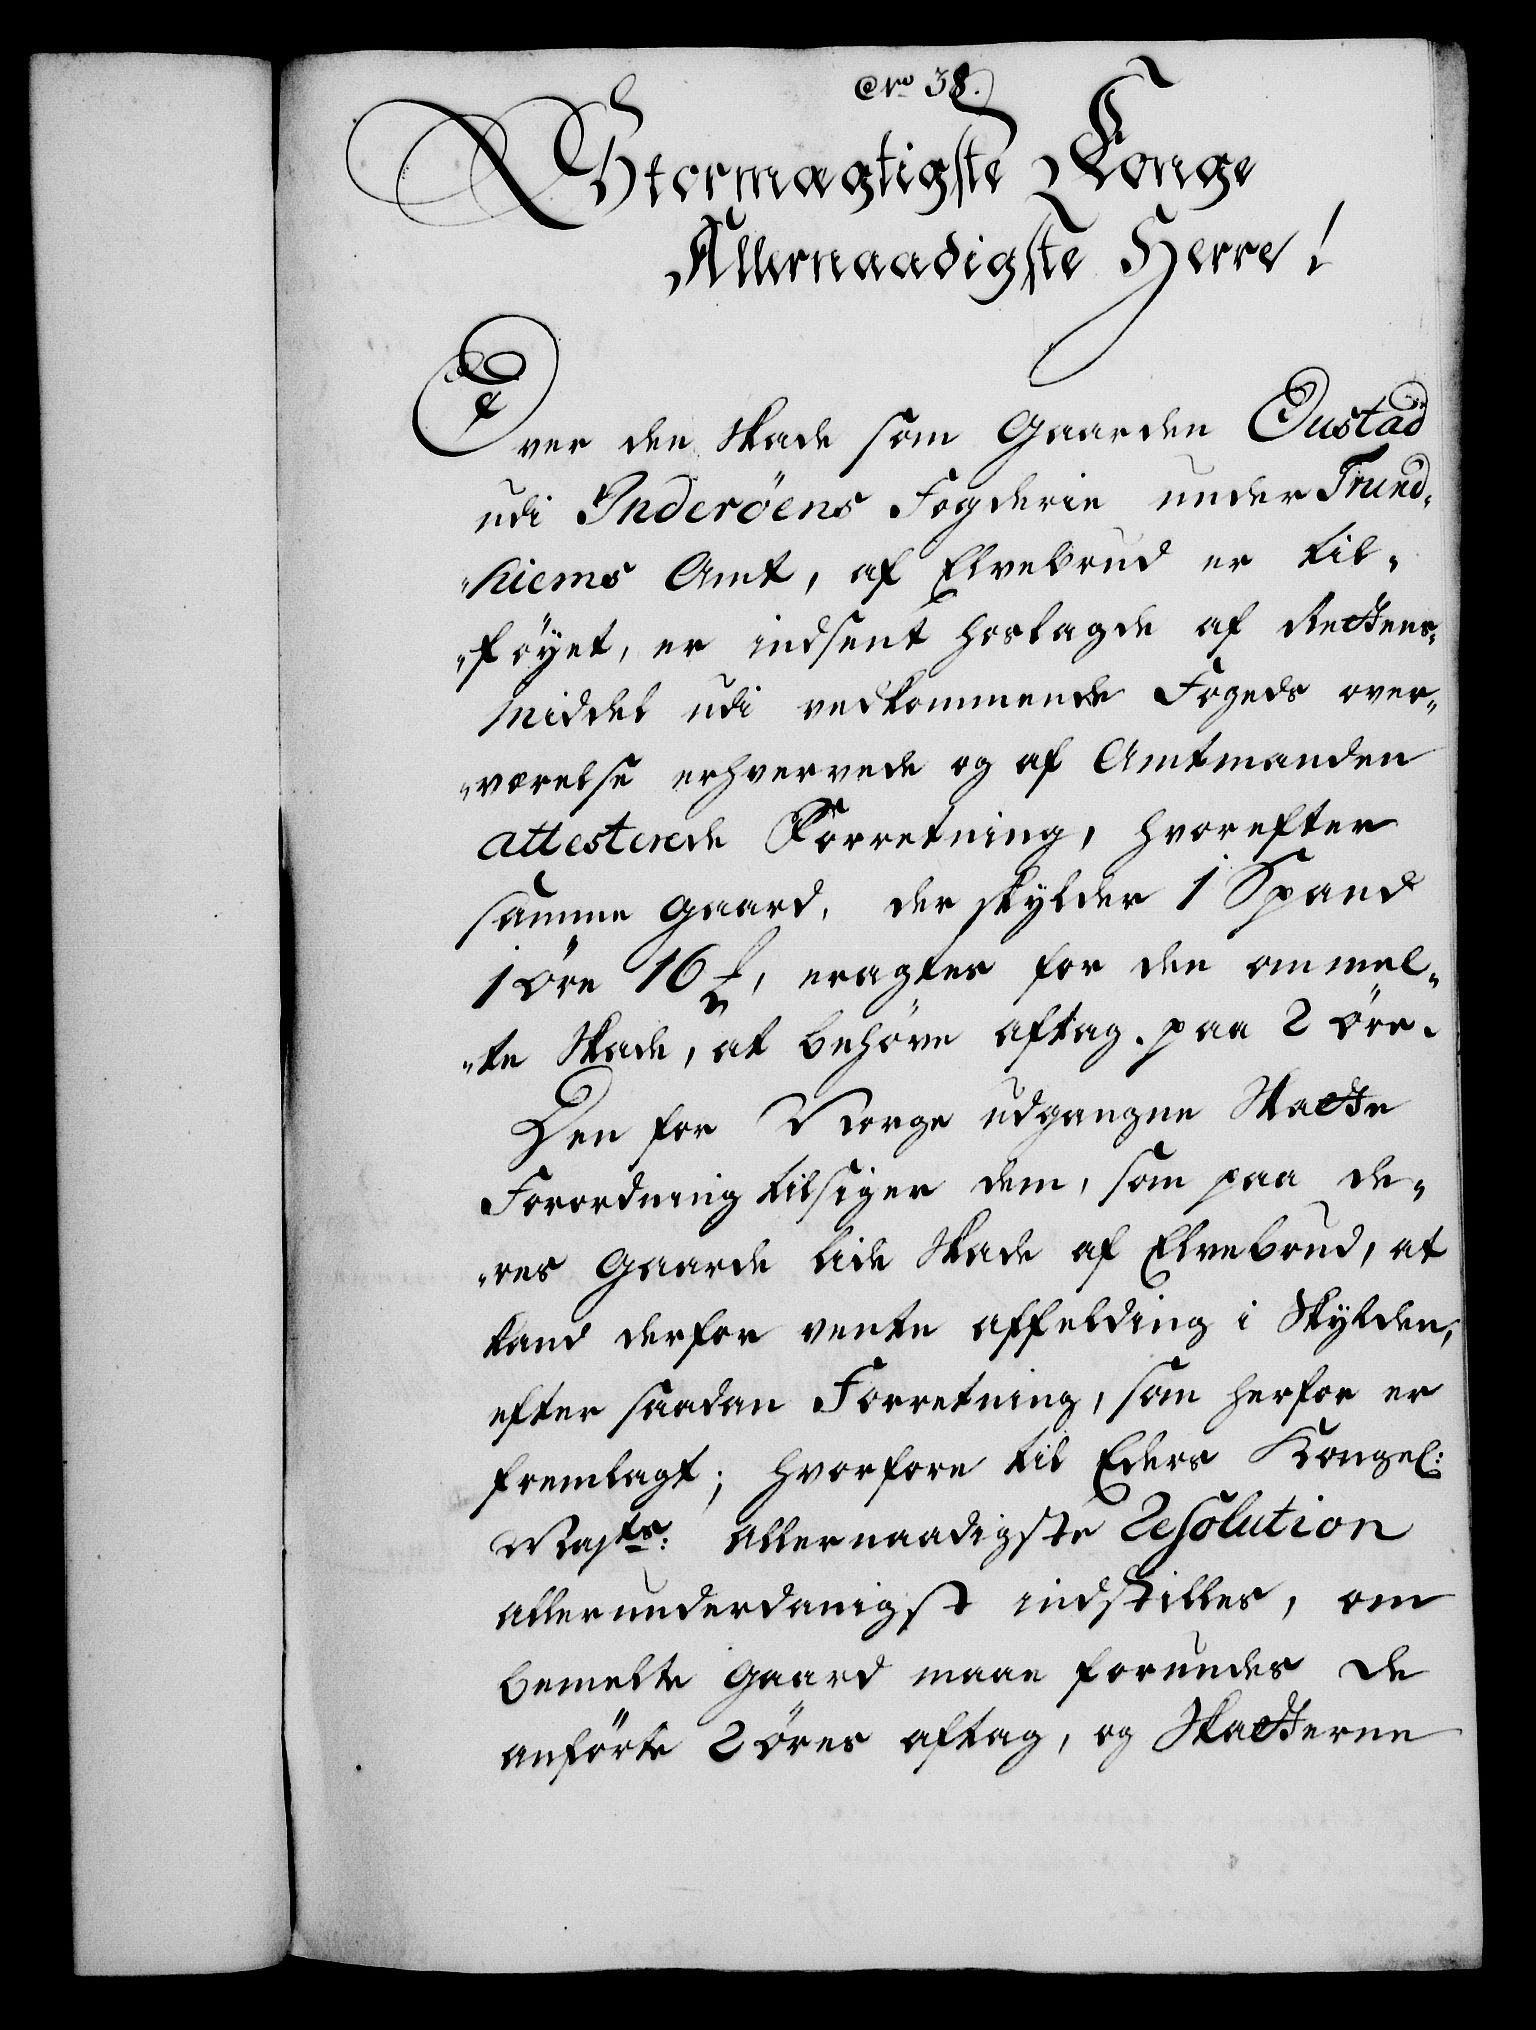 No 38.
Stormægtigste Konge
Allernaadigste Herre!
Over den Skade som Gaarden Oustad
udi Inderöens Fogderie under Trund-
-hiems Amt, af Elvebrud er til-
-föyet, er indsent hoslagde af Rettens-
Middel udi vedkommende Fogeds over-
-værelse erhvervede og af Amtmanden
attesterede Forretning, hvorefter
samme Gaard, der skylder 1 Spand
1 öre 16 ₰, eragtes for den ommel-
-te Skade, at behöve aftag paa 2 öre.
Den for Norge udgangne Skatte
Forordning tilsiger dem, som paa de-
-res Gaarde lide Skade af Elvebrud, at
kand derfor vente affelding i Skylden,
efter saadan Forretning, som herfor er
fremlagt; hvorfore til Eders Kongel:
Majts: allernaadigste Resolution
allerunderdanigst indstilles, om
bemelte Gaard maae forundes de
anförte 2 öres aftag, og Skatterne